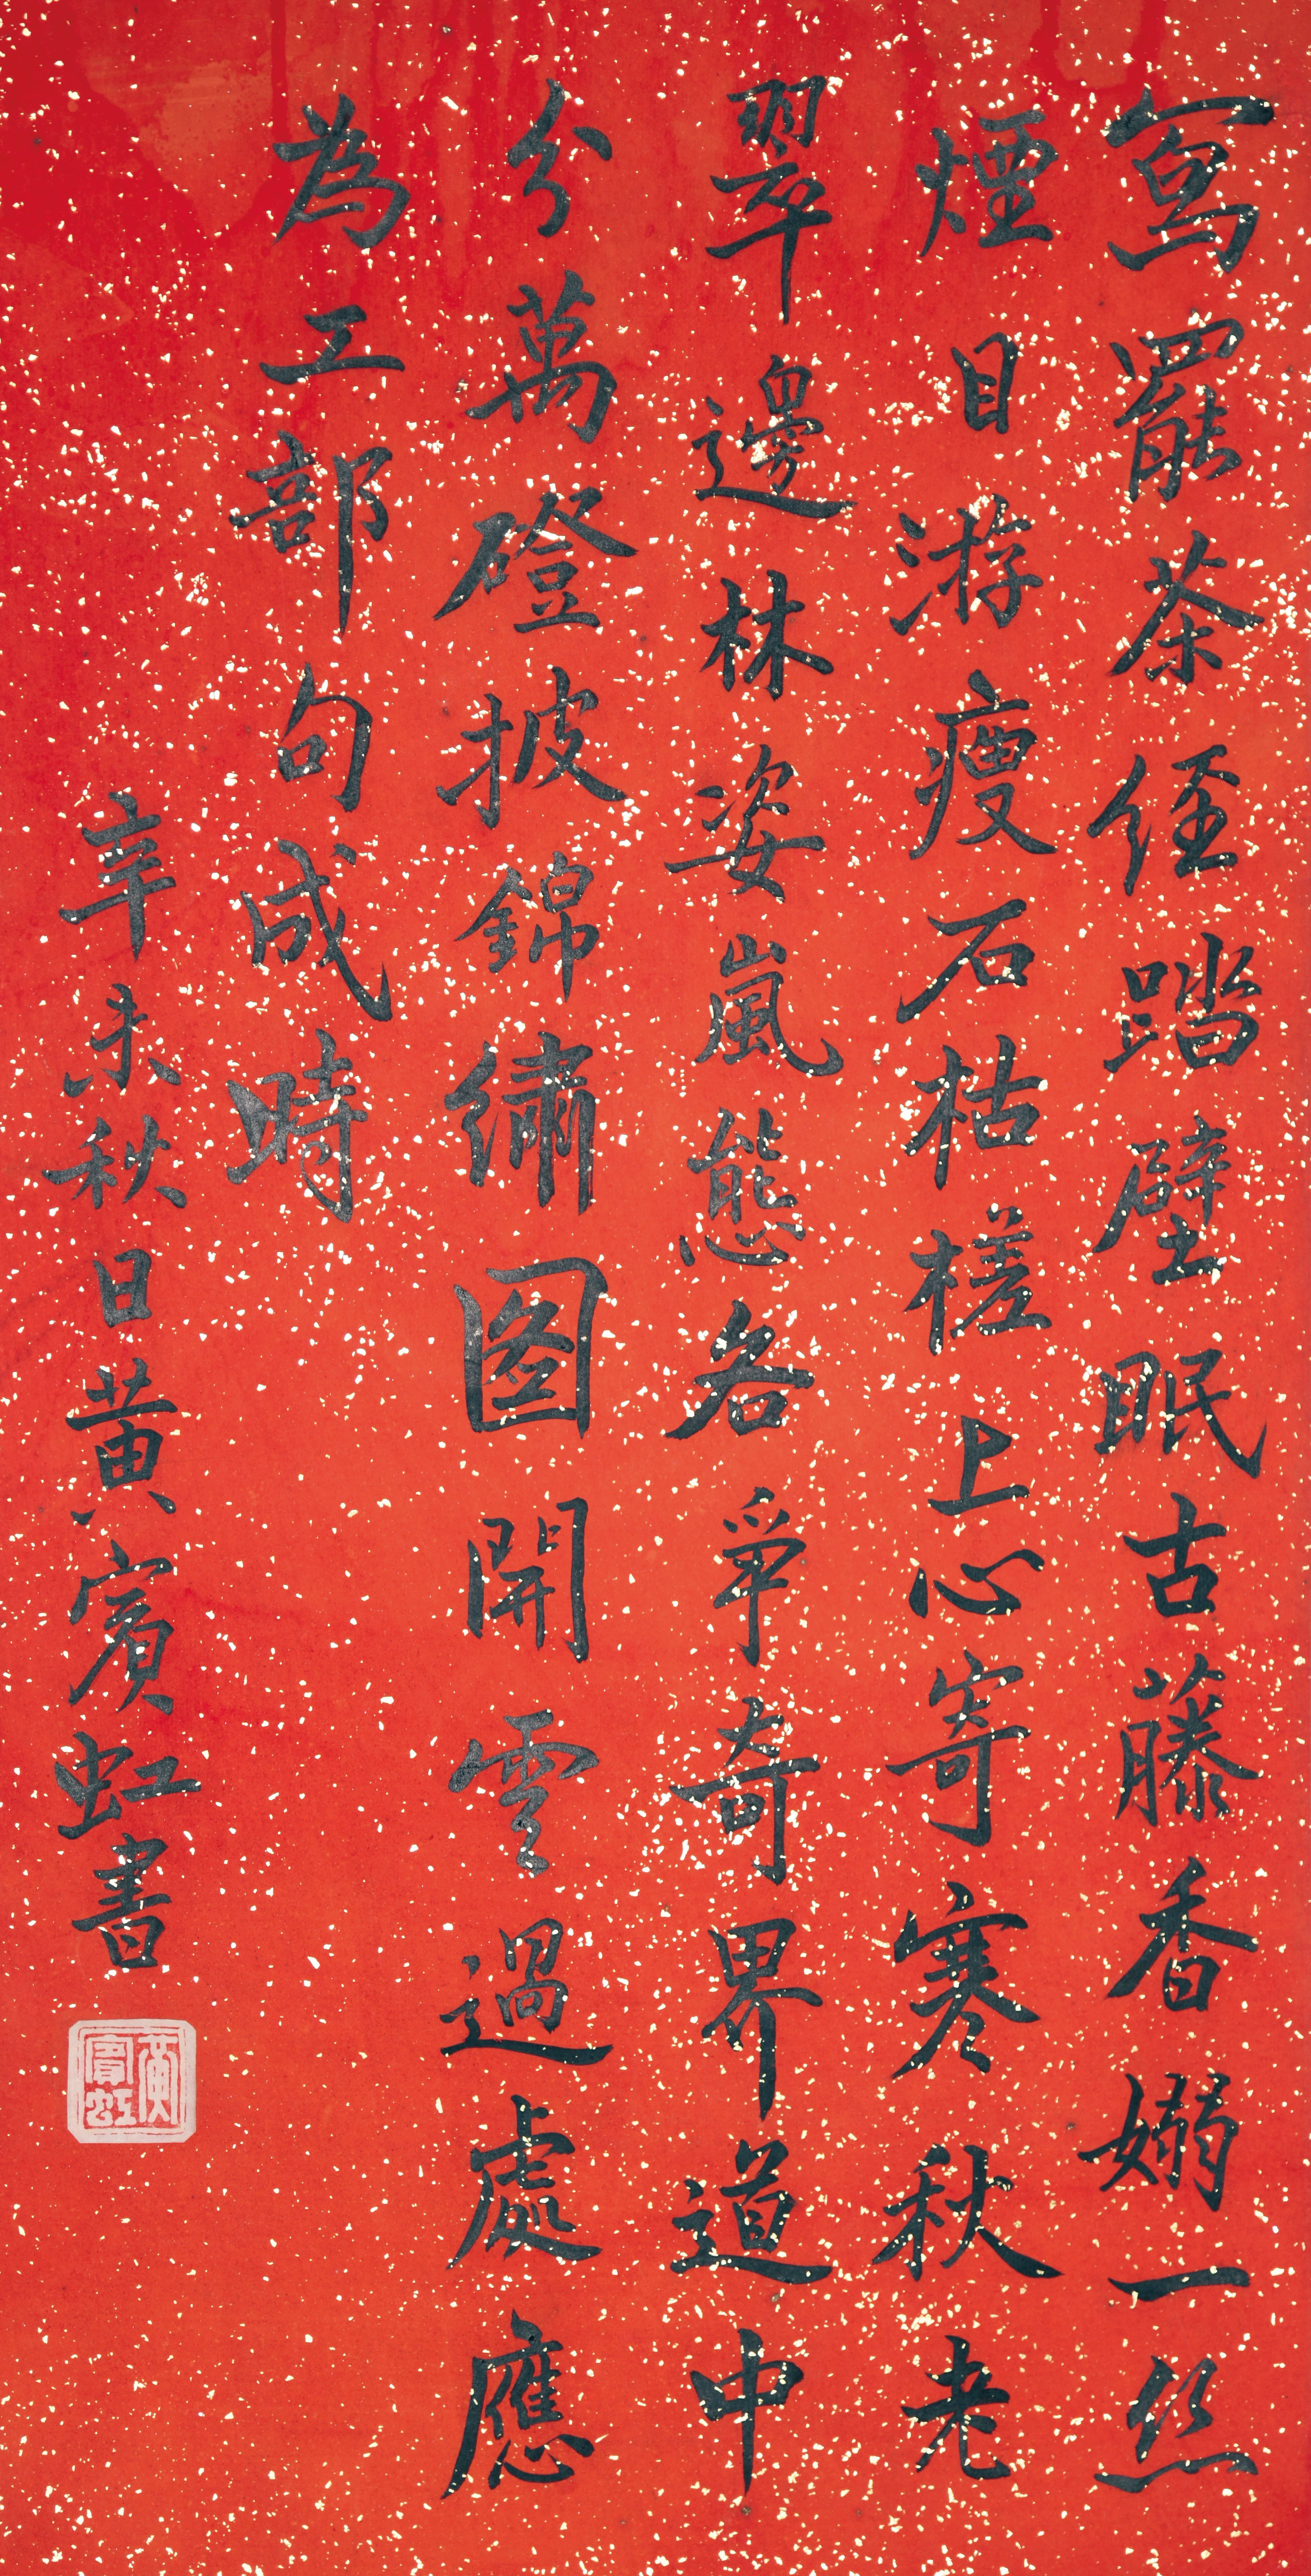 寫罷茶經踏壁眠古藤香嫋一丝
煙目游瘦石枯槎上心寄寒秋老
翠邊林姿嵐態各爭奇界道中
分萬磴披錦繡圖開雲過處應
為工部句成時
辛未秋日黄賓虹書
黄賓虹